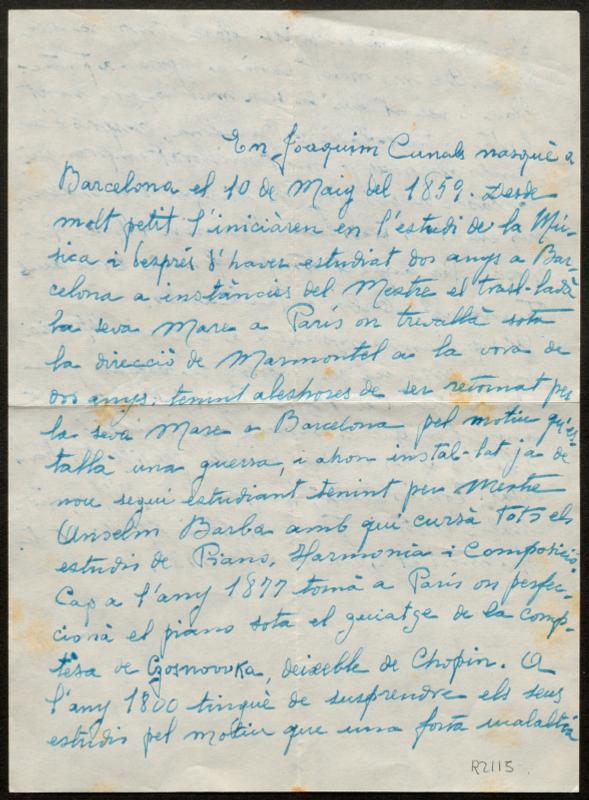 En Joaquim Canals nasquè a
Barcelona el 10 de Maig del 1859. Desde
molt petit l'iniciàren en l'estudi de la Mú-
sica i després d'haver estudiat dos anys a Bar-
celona a instàncies del Mestre el trasl-ladà
la seva Mare a París on trevallà sota
la direcció de Marmontel a la vora de
dos anys, tenint aleshores de ser retornat per
la seva Mare a Barcelona pel motiu qu'es-
tallà una guerra, i ahon instal-lat ja de
nou seguí estudiant tenint per Mestre
Anselm Barba amb qui cursà tots els
estudis de Piano, Harmonia i Composició.
Cap a l'any 1877 tornà a París on perfec-
cionà el piano sota el guiatge de la comp-
tesa de Czosnowska, deixeble de Chopin. A
l'any 1800 tinguè de suspendre els seus
estudis pel motiu que una forta malaltia
R2115